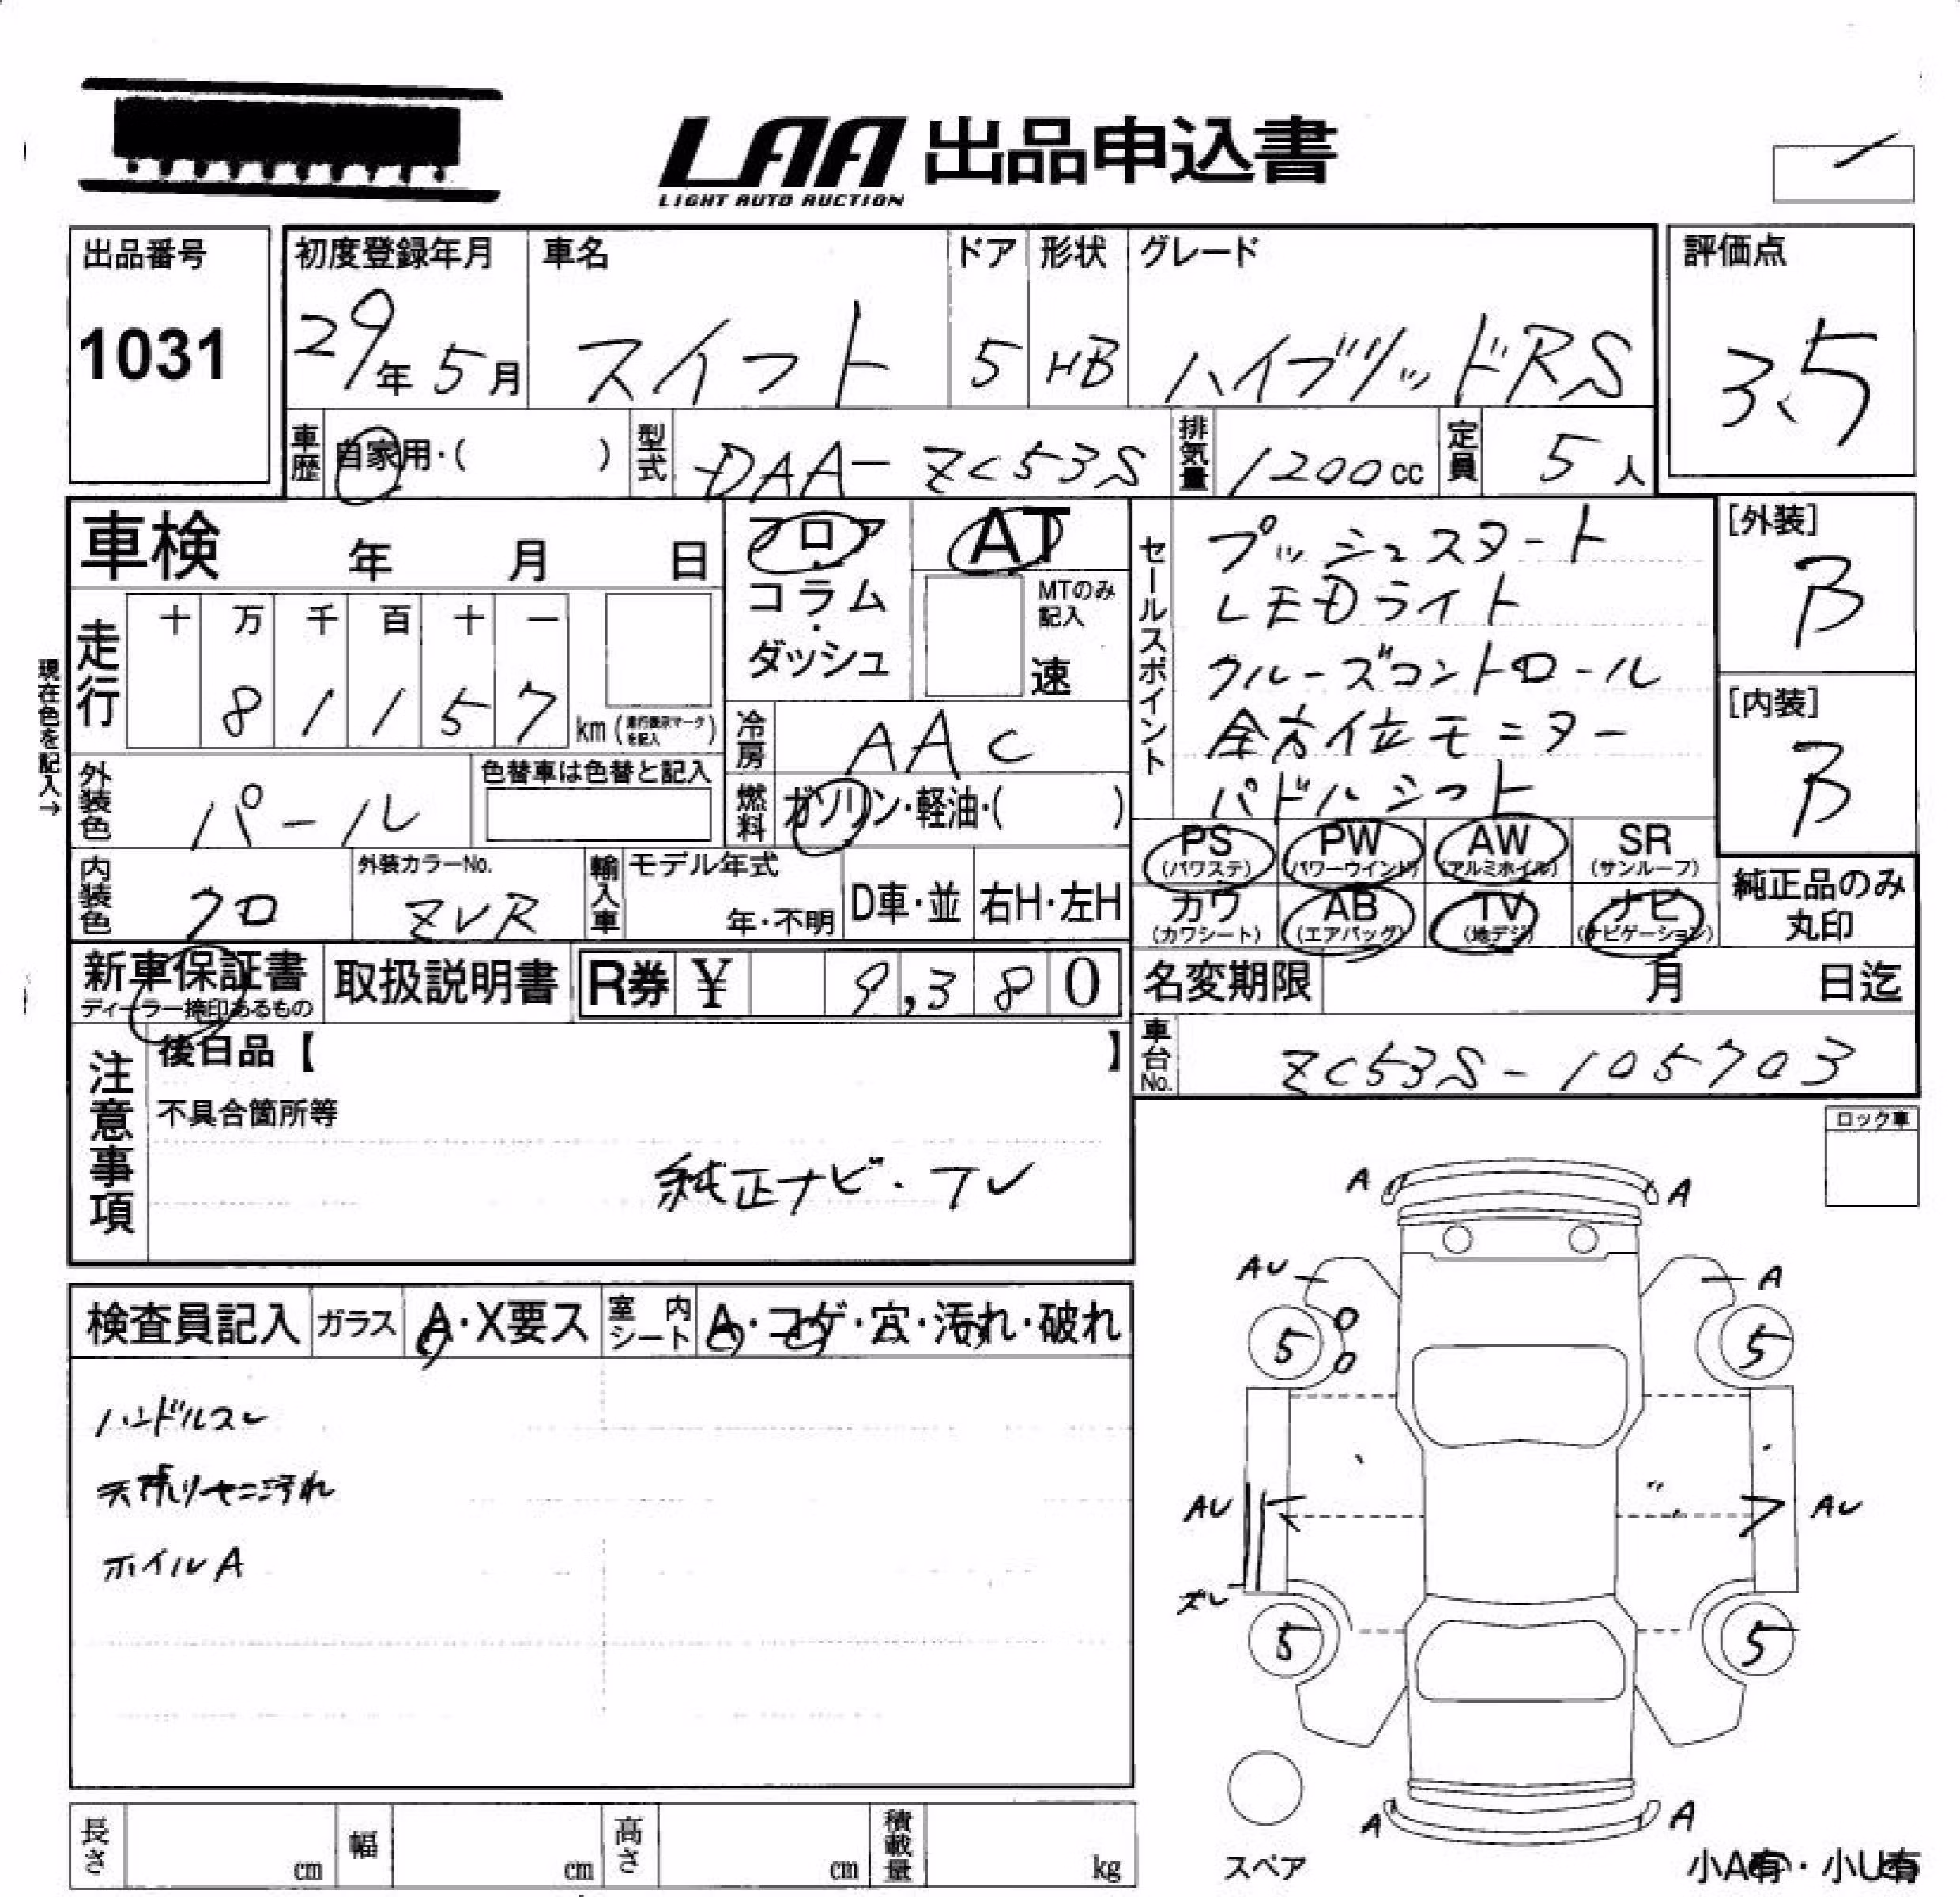 LAA 出品申込書
LIGHT AUTO AUCTION
出品番号
1031
初度登録年月
29年5月
車名
スイフト
ドア
5
形状
HB
グレード
ハイブリッドRS
評価点
3.5
車歴 自家用・( )
型式 DAA-ZC53S
排気量 1200cc
定員 5人
車検 年 月 日
フロア・コラム・ダッシュ
AT
MTのみ記入
速
セールスポイント
プッシュスタート
LEDライト
クルーズコントロール
全方位モニター
パドルシフト
[外装]
B
[内装]
B
現在色を記入→
走行
十 万 千 百 十 一
8 1 1 5 7 km (走行表示マークを記入)
冷房 AAC
外装色 パール
色替車は色替と記入
燃料 ガソリン・軽油・( )
PS (パワステ)
PW (パワーウインド)
AW (アルミホイル)
SR (サンルーフ)
カワ (カワシート)
AB (エアバッグ)
TV (地デジ)
ナビ (ナビゲーション)
純正品のみ丸印
内装色 クロ
外装カラーNo.
ZVR
輸入車
モデル年式
年・不明
D車・並
右H・左H
新車保証書
ディーラー捺印あるもの
取扱説明書
R券 ¥ 9,380
名変期限 月 日迄
車台No. ZC53S-105703
注意事項
後日品【 】
不具合箇所等
純正ナビ・TV
ロック車
検査員記入
ガラス A・X要ス
室内シート A・コゲ・穴・汚れ・破れ
ハンドルスレ
天張り
汚れ
ホイルA
A A
AU A
5 5
AU AU
ズレ
5 5
A A
スペア
小A有・小U有
長さ cm
幅 cm
高さ cm
積載量 kg